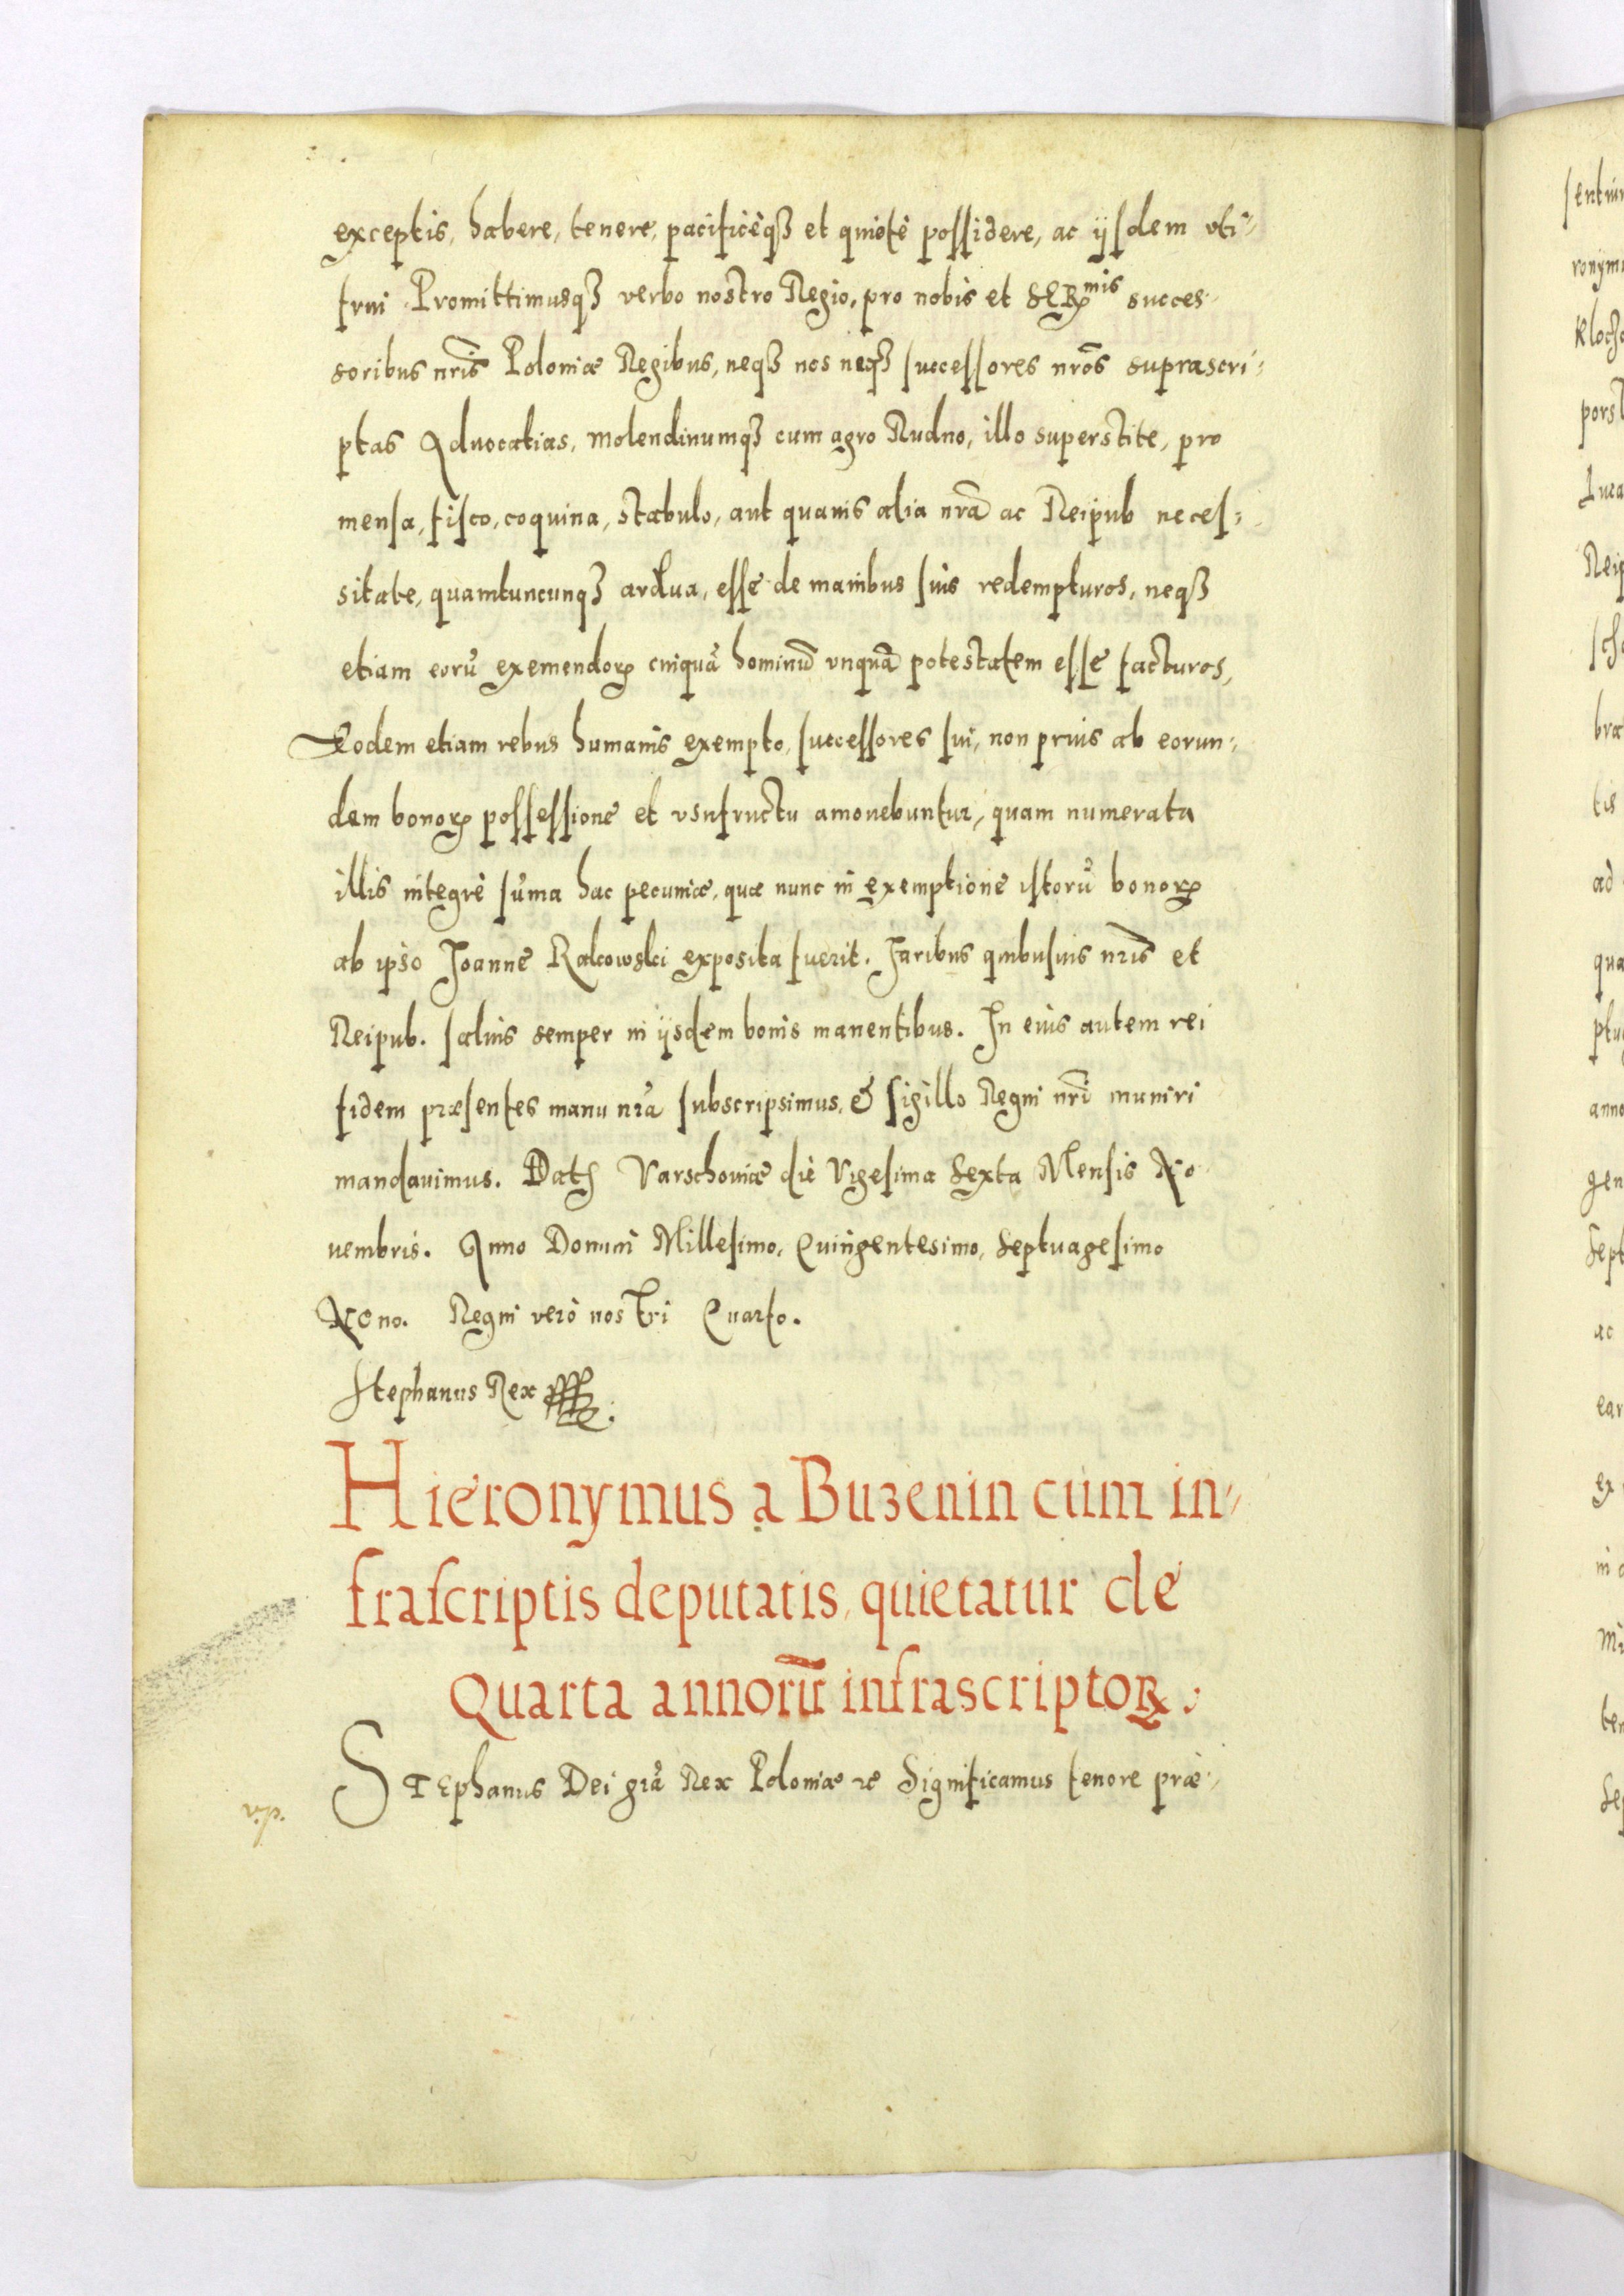 exceptis, habere, tenere, pacificèqꝫ et quietè possidere, ac ijsdem uti
frui Promittimusqꝫ verbo nostro Regio, pro nobis et SERmis succes-
soribus nris Poloniæ Regibus, neqꝫ nos neqꝫ successores nros suprascri-
ptas Aduocatias, molendinumqꝫ cum agro Rudno, illo superstite, pro
mensa, fisco, coquina, stabulo, aut quauis alia nrã ac Reipub neces-
sitate, quamtuncunqꝫ ardua, esse de manibus suis redempturos, neqꝫ
etiam eorũ exemendoꝝ cuiquã hominũ vnquã potestatem esse facturos,
Eodem etiam rebus humanis exempto, successores sui, non prius ab eorun-
dem bonoꝝ possessione et vsufructu amouebuntur, quam numerata
illis integrè sũma hac pecuniæ, quæ nunc in exemptione istorũ bonoꝝ
ab ipso Joanne Rakowski exposita fuerit. Juribus quibusuis nris et
Reipub. saluis semper in ijsdem bonis manentibus. In eius autem rei
fidem præsentes manu nrã subscripsimus, & sigillo Regni nri muniri
mandauimus. Datꝫ Varschouiæ die Vigesima Sexta Mensis No
uembris. Anno Domini Millesimo, Quingentesimo, Septuagesimo
Nono. Regni verò nostri Quarto.
Stephanus Rex
Hieronymus a Buzenin cum in-
frascriptis deputatis, quietatur de
Quarta annorũ infrascriptoꝝ.
STEphanus Dei grã Rex Poloniæ ꝛc Significamus tenore præ-